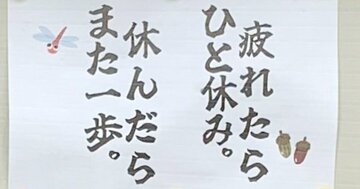 疲れたら
ひと休み。
休んだら
また一歩。